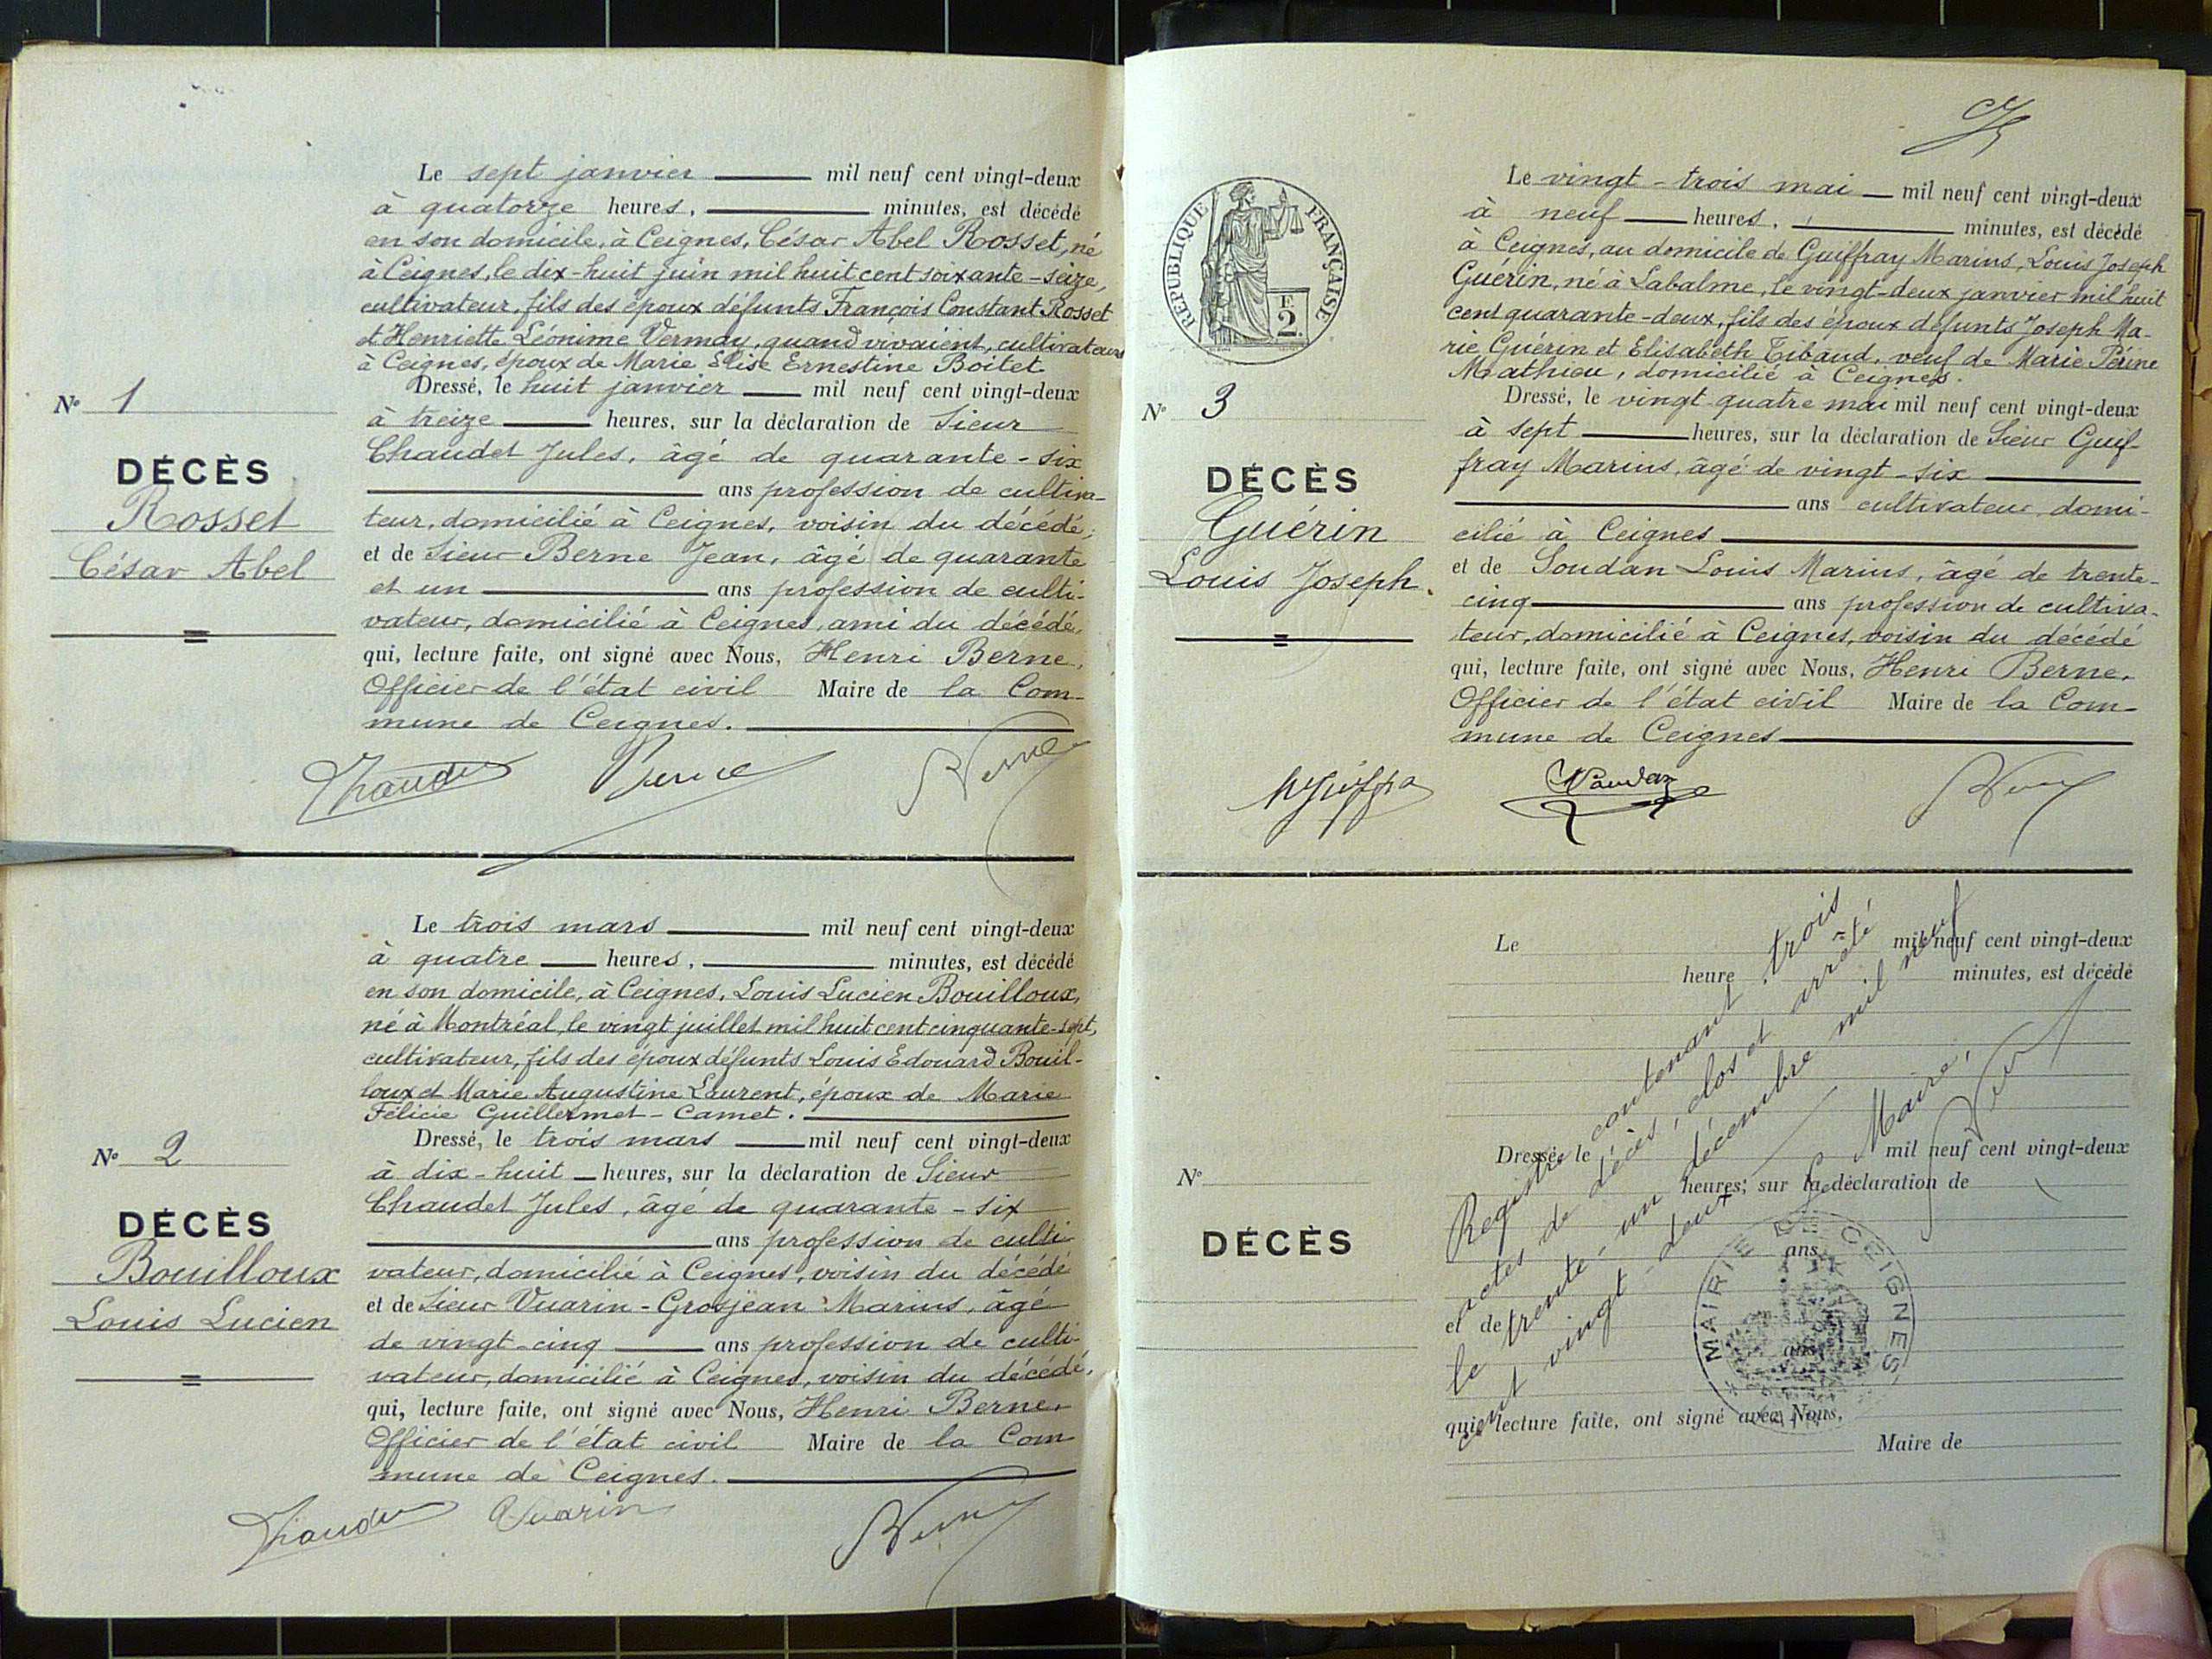 Le sept janvier mil neuf cent vingt-deux
à quatorze heures, minutes, est décédé
en son domicile, à Ceignes, César Abel Rosset, né
à Ceignes, le dix-huit juin mil huit cent soixante-seize,
cultivateur, fils des époux défunts François Constant Rosset
et Henriette Léonime Vermay, quand vivaient, cultivateurs
à Ceignes, époux de Marie Elise Ernestine Boitet
Dressé, le huit janvier mil neuf cent vingt-deux
à treize heures, sur la déclaration de Sieur
Chaudet Jules, âgé de quarante-six
ans profession de cultiva-
teur, domicilié à Ceignes, voisin du décédé,
et de Sieur Berne Jean, âgé de quarante
et un ans profession de culti-
vateur, domicilié à Ceignes, ami du décédé,
qui, lecture faite, ont signé avec Nous, Henri Berne,
Officier de l'état civil Maire de la Com-
mune de Ceignes.
N° 1
DÉCÈS
Rosset
César Abel
Chaudet Berne Berne
Le trois mars mil neuf cent vingt-deux
à quatre heures, minutes, est décédé
en son domicile, à Ceignes, Louis Lucien Bouilloux,
né à Montréal, le vingt juillet mil huit cent cinquante-sept,
cultivateur, fils des époux défunts Louis Edouard Bouil-
loux et Marie Augustine Laurent, époux de Marie
Félicie Guillermet-Camet.
Dressé, le trois mars mil neuf cent vingt-deux
à dix-huit heures, sur la déclaration de Sieur
Chaudet Jules, âgé de quarante-six
ans profession de culti-
vateur, domicilié à Ceignes, voisin du décédé
et de Sieur Vuarin-Grosjean Marius, âgé
de vingt-cinq ans profession de culti-
vateur, domicilié à Ceignes, voisin du décédé,
qui, lecture faite, ont signé avec Nous, Henri Berne,
Officier de l'état civil Maire de la Com
mune de Ceignes.
N° 2
DÉCÈS
Bouilloux
Louis Lucien
Chaudet Vuarin Berne
RÉPUBLIQUE FRANÇAISE
2 F.
Le vingt-trois mai mil neuf cent vingt-deux
à neuf heures, minutes, est décédé
à Ceignes, au domicile de Guiffray Marius, Louis Joseph
Guérin, né à Labalme, le vingt-deux janvier mil huit
cent quarante-deux, fils des époux défunts Joseph Ma-
rie Guérin et Elisabeth Tibaud, veuf de Marie Périne
Mathieu, domicilié à Ceignes.
Dressé, le vingt-quatre mai mil neuf cent vingt-deux
à sept heures, sur la déclaration de Sieur Guif-
fray Marius, âgé de vingt-six
ans cultivateur, domi-
cilié à Ceignes
et de Soudan Louis Marius, âgé de trente-
cinq ans profession de cultiva-
teur, domicilié à Ceignes, voisin du décédé
qui, lecture faite, ont signé avec Nous, Henri Berne,
Officier de l'état civil Maire de la Com-
mune de Ceignes
N° 3
DÉCÈS
Guérin
Louis Joseph.
Berne
Le mil neuf cent vingt-deux
heure minutes, est décédé
Dressé, le mil neuf cent vingt-deux
heures, sur la déclaration de
ans
et de
ans
qui, lecture faite, ont signé avec Nous,
Maire de
N°
DÉCÈS
Registre contenant trois
actes de décès, clos et arrêté
le trente-un décembre mil neuf
cent vingt-deux
Le Maire,
Berne
MAIRIE DE CEIGNES